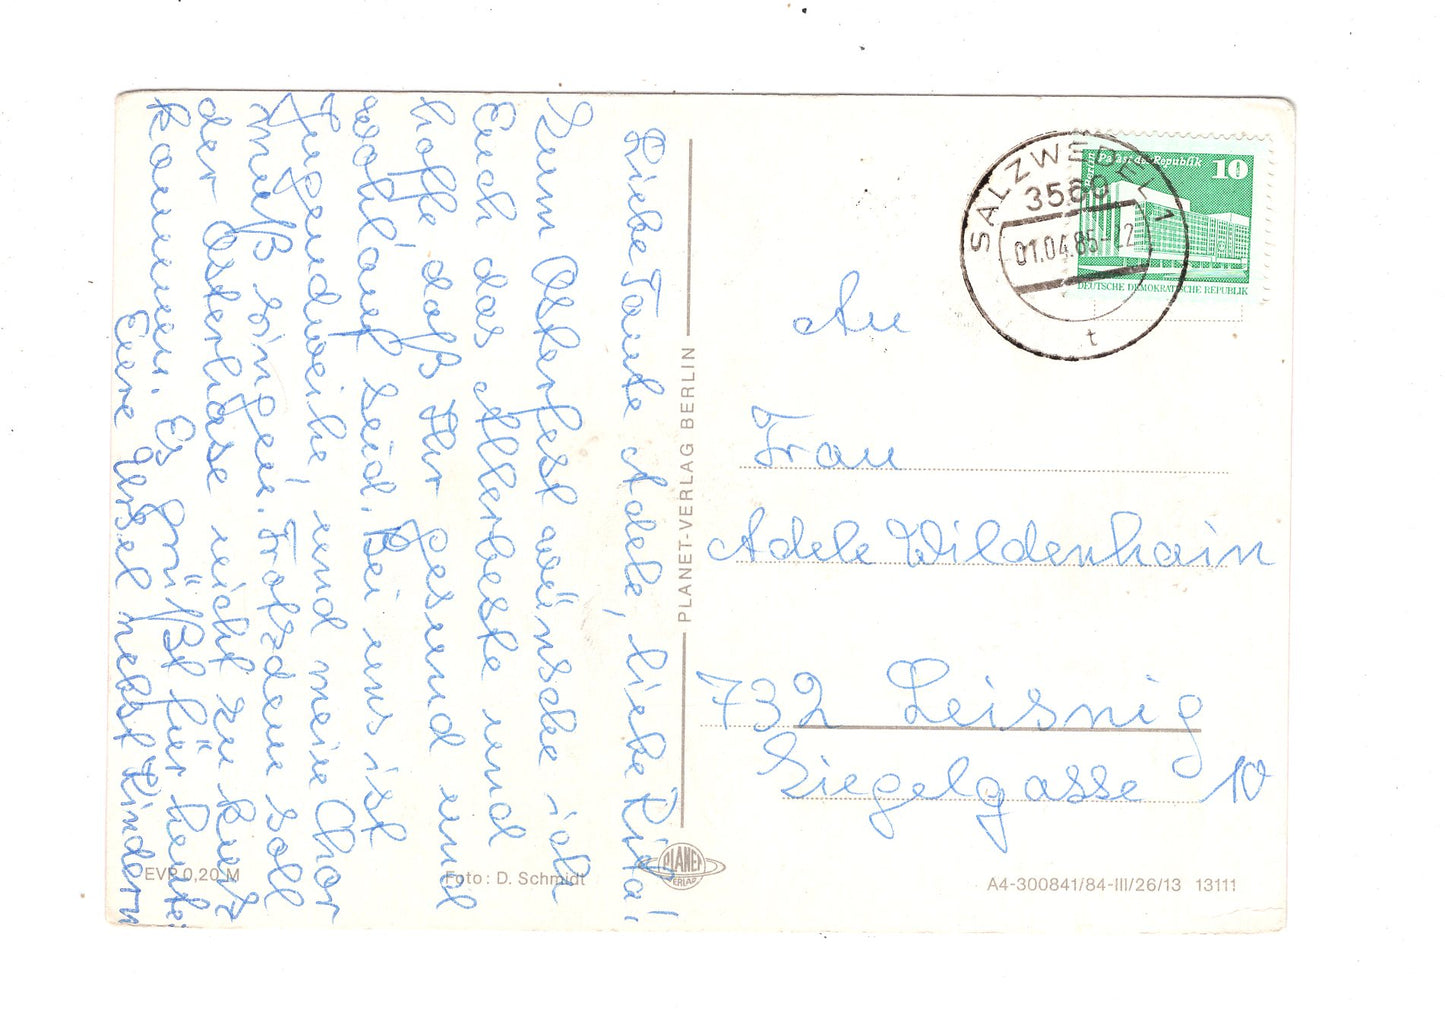 Liebe Tante Adele, liebe Rita!
Zum Osterfest wünsche ich
Euch das Allerbeste und
hoffe daß Ihr gesund und
wohlauf seid. Bei uns ist
Jugendweihe, und mein Chor
muß singen. Trotzdem soll
der Osterhase nicht zu kurz
kommen. Es grüßt für heute
Eure Ursel nebst Kindern
PLANET-VERLAG BERLIN
EVP 0,20 M
Foto: D. Schmidt
PLANET
VERLAG
SALZWEDEL 1
3560
01.04.85-22
t
Berlin
Palast der Republik
10
DEUTSCHE DEMOKRATISCHE REPUBLIK
An
Frau
Adele Wildenhain
732 Leisnig
Ziegelgasse 10
A4-300841/84-III/26/13 13111